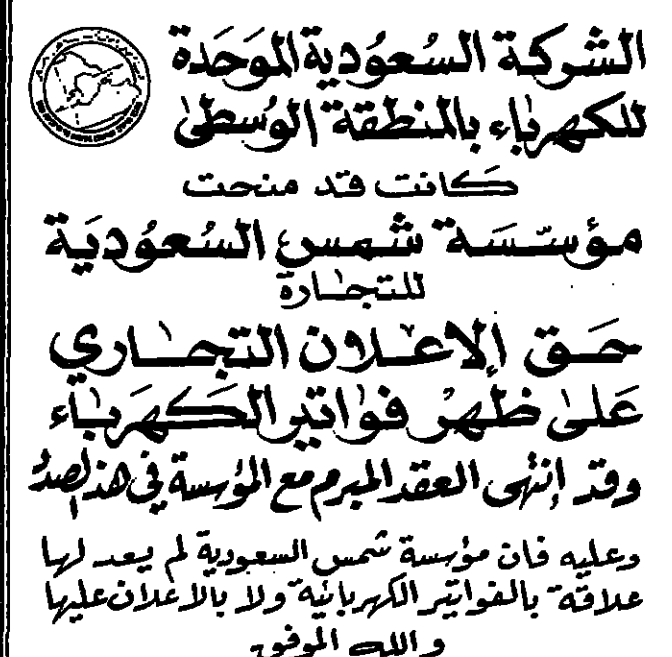 الشركة السعودية الموحدة
للكهرباء بالمنطقة الوسطى
كانت قد منحت
مؤسسة شمس السعودية
للتجارة
حق الإعلان التجاري
على ظهر فواتير الكهرباء
وقد إنتهى العقد المبرم مع المؤسسة في هذا الصدد
وعليه فان مؤسسة شمس السعودية لم يعد لها
علاقة بالفواتير الكهربائية ولا بالاعلان عليها
والله الموفق